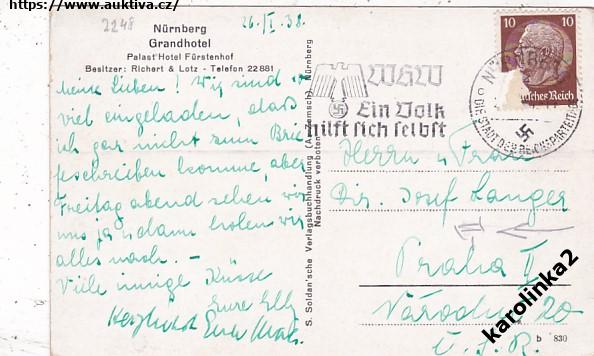 https://www.auktiva.cz/
2248
Nürnberg
Grandhotel
Palast Hotel Fürstenhof
Besitzer: Richert & Lotz - Telefon 22881
26./I. 38.
Meine Lieben! Wir sind so
viel eingeladen, daß
ich gar nicht zum Brie-
feschreiben komme, aber
Freitag abend sehen wir
uns ja u. dann holen wir
alles nach. —
Viele innige Küsse
Eure Elly
Herzlichst Euer
S. Soldan'sche Verlagsbuchhandlung (A. Zemsch) Nürnberg
Nachdruck verboten
WHW
Ein Volk
hilft sich selbst
10 10
Deutsches Reich
NÜRNBERG
DIE STADT DER REICHSPARTEITAGE
Herrn u. Frau
Dir. Josef Langer
Praha II
Národní 20
Č. S. R.
b 830
karolinka2